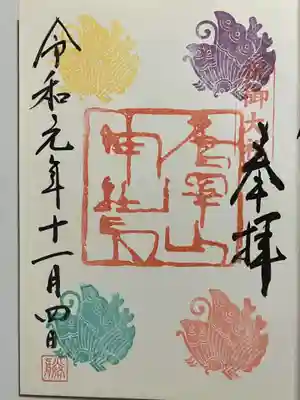 奉拝
御大
唐澤山
神社
令和元年十一月四日